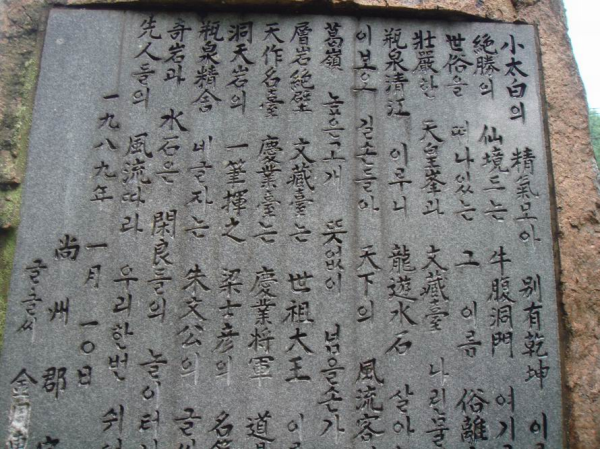 小太白의 精氣모아 別有乾坤 이
絶勝의 仙境드는 牛腹洞門 여기
世俗을 떠나있는 그 이름 俗離
壯嚴한 天皇峯과 文藏臺 나린물
瓶泉清江 이루니 龍遊水石 살아
이보오 길손들아 天下의 風流客
葛嶺 높은고개 뜻없이 넘을손가
層岩絶壁 文藏臺는 世祖大王
天作名臺 慶業臺는 慶業将軍
洞天岩의 一筆揮之 梁士彦의 名
瓶泉精舍 네글자는 朱文公의 글
奇岩과 水石은 閑良들의 놀이터
先人들의 風流따라 우리한번 쉬
一九八九年 一月 一〇日
尚州郡
글글씨 金